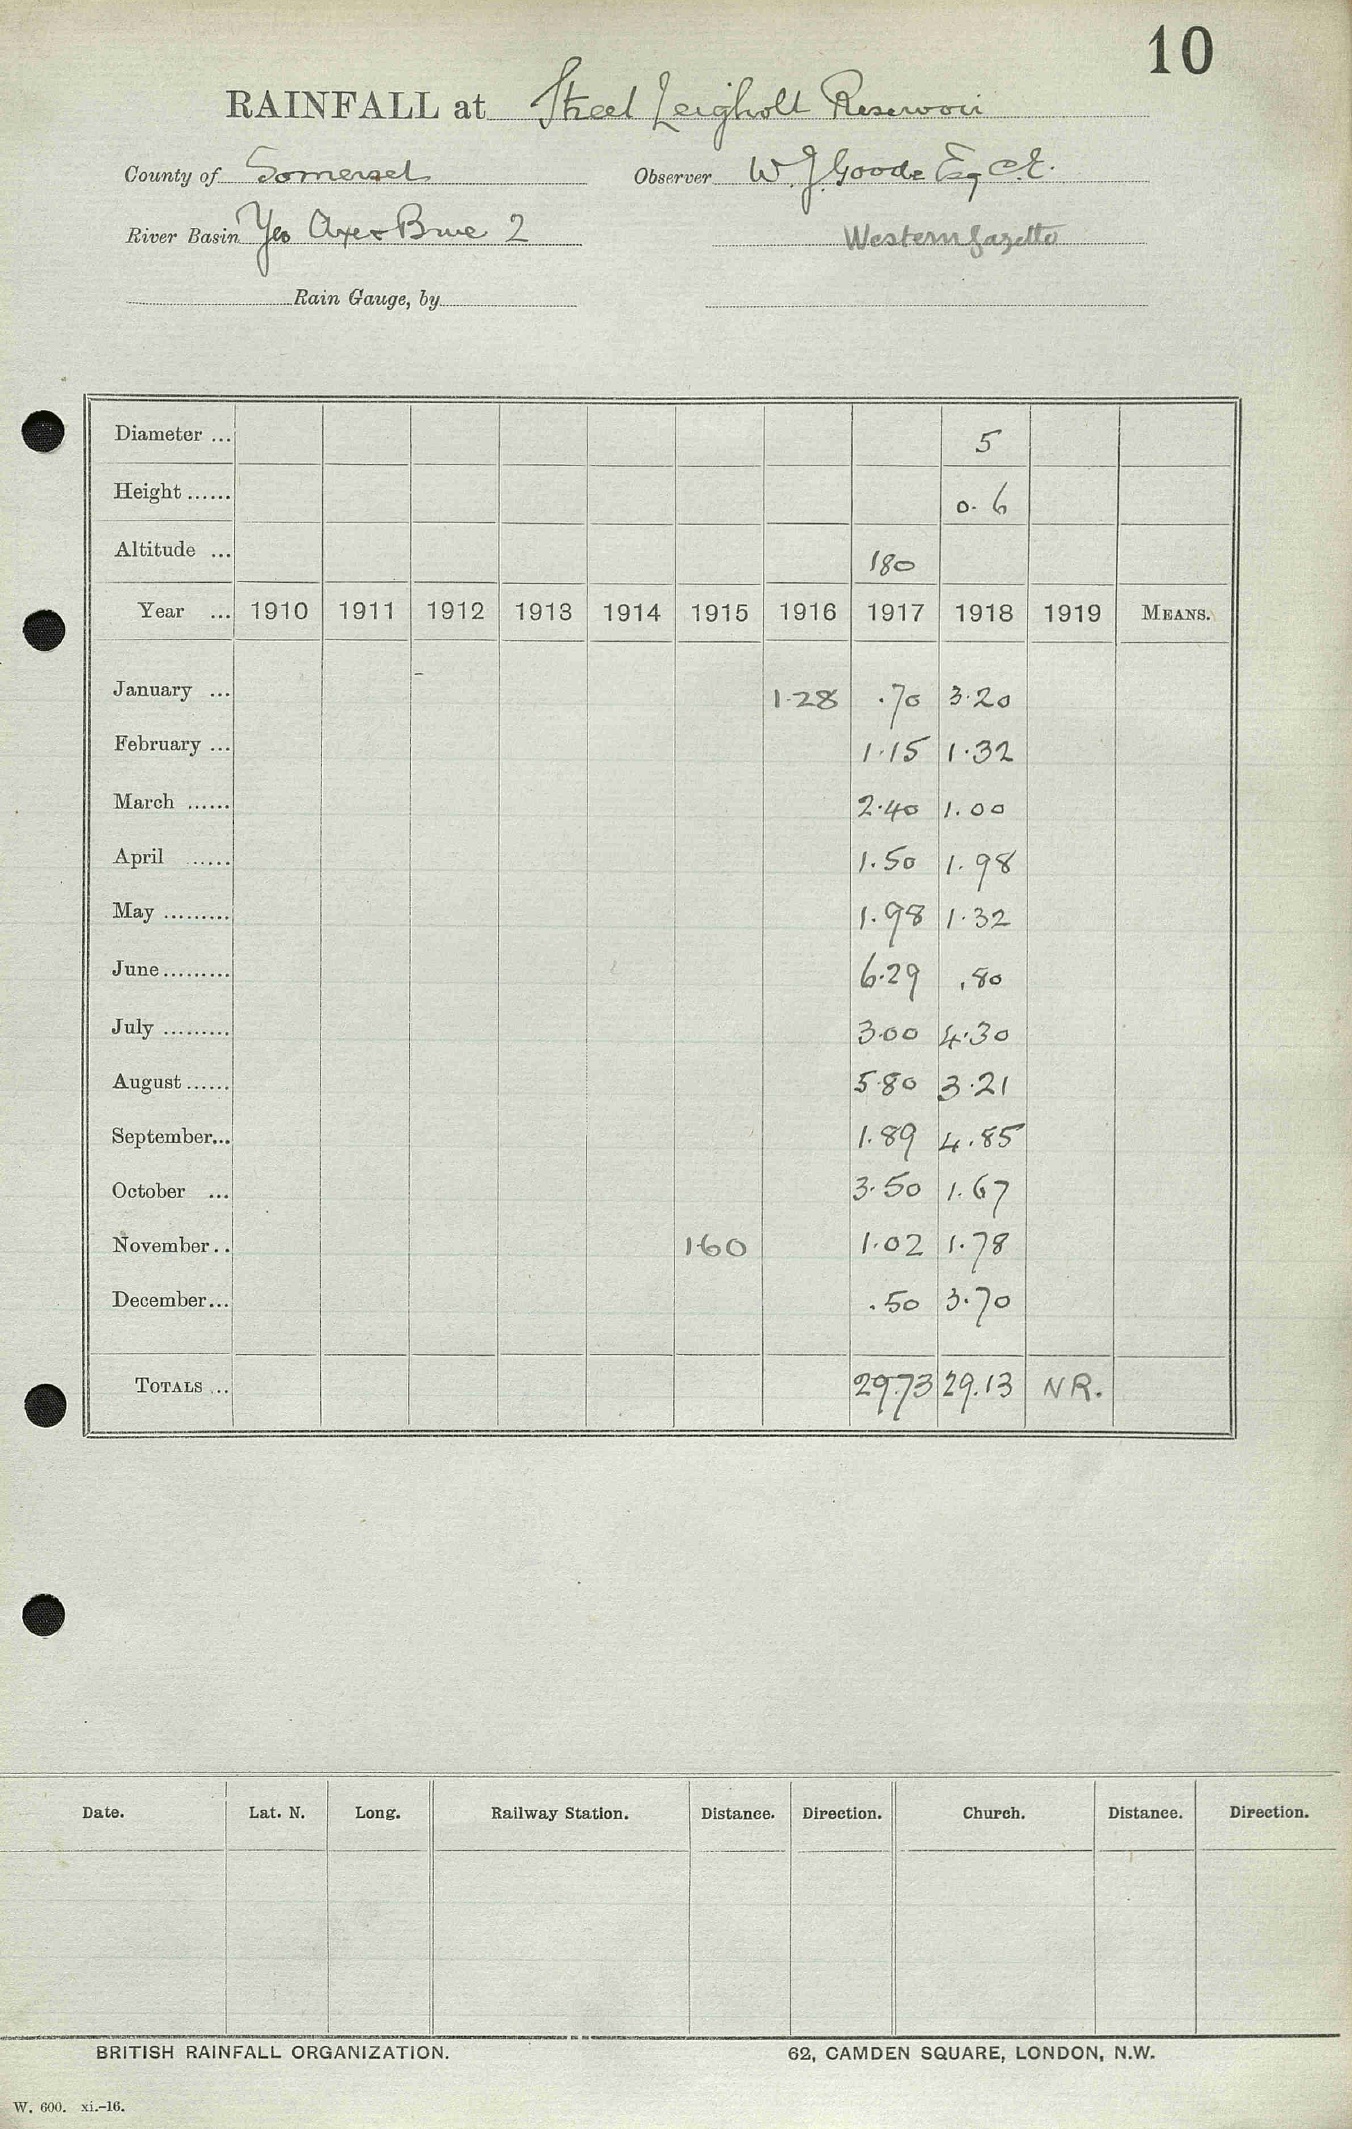 10
RAINFALL at Street Leigholt Reservoir
County of Somerset Observer W. J. Goode Esq C.E.
River Basin Yeo Axe & Brue 2 Western Gazette
Rain Gauge, by
Diameter ... 5
Height ...... 0.6
Altitude ... 180
Year ... 1910 1911 1912 1913 1914 1915 1916 1917 1918 1919 MEANS.
January ... 1.28 .70 3.20
February ... 1.15 1.32
March ...... 2.40 1.00
April ...... 1.50 1.98
May ......... 1.98 1.32
June ......... 6.29 .80
July ......... 3.00 4.30
August ...... 5.80 3.21
September... 1.89 4.85
October ... 3.50 1.67
November .. 1.60 1.02 1.78
December... .50 3.70
TOTALS ... 29.73 29.13 NR.
Date. Lat. N. Long. Railway Station. Distance. Direction. Church. Distance. Direction.
BRITISH RAINFALL ORGANIZATION. 62, CAMDEN SQUARE, LONDON, N.W.
W. 600. xi.-16.